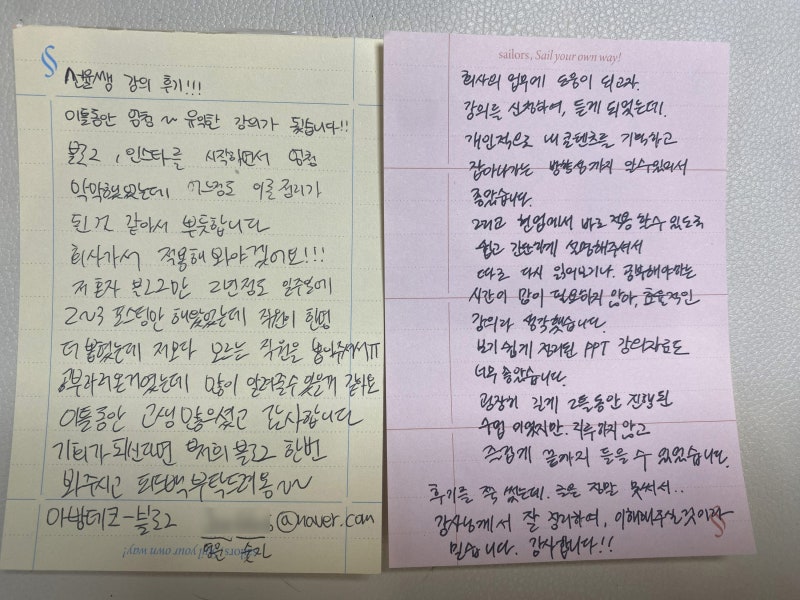 선율쌤 강의 후기!!!
이틀동안 엄청~ 유익한 강의가 됫습니다!!
블로그, 인스타를 시작하면서 엄청
막막했었는데 어느정도 이론정리가
된 것 같아서 뿌듯합니다
회사가서 적용해 와야겠어요!!!
저 혼자 블로그만 2년정도 일주일에
2~3 포스팅만 해왔었는데 직원이 한명
더 붙혔는데 저보다 모르는 직원을 붙여주셔서ㅠ
공부하러온거였는데 많이 알려줄수 있을거 같아요
이틀동안 고생 많으셨고 감사합니다
기회가 되신다면 저희 블로그 한번
봐주시고 피드백 부탁드려용~~
아방데코-블로그 @naver.com
영문 숫자
sailors, Sail your own way!
sailors, Sail your own way!
회사의 업무에 도움이 되고자.
강의를 신청하여, 듣게 되었는데.
개인적으로 내 콘텐츠를 기획하고
잡아나가는 방향성까지 알수있어서
좋았습니다.
그리고 현업에서 바로 적용 할수 있도록
쉽고 간단하게 설명해주셔서
따로 다시 읽어보거나, 공부해야하는
시간이 많이 필요하지 않아, 효율적인
강의라 생각했습니다.
보기 쉽게 정리된 PPT 강의자료도
너무 좋았습니다.
굉장히 길게 2틀동안 진행된
수업 이었지만. 지루하지 않고
즐겁게 끝까지 들을 수 있었습니다.
후기를 쭉 썼는데. 글을 진짜 못써서..
강사님께서 잘 정리하여, 이해해주실것이라
믿습니다. 감사합니다!!